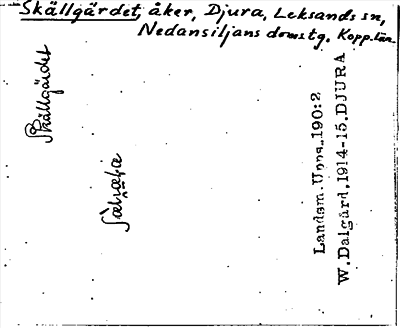 Skällgärdet, åker, Djura, Leksands sn,
Nedansiljans domstg. Kopp. län
Skällgärdet
Landsm. Upps. 190:2
W. Dalgård. 1914-15. DJURA